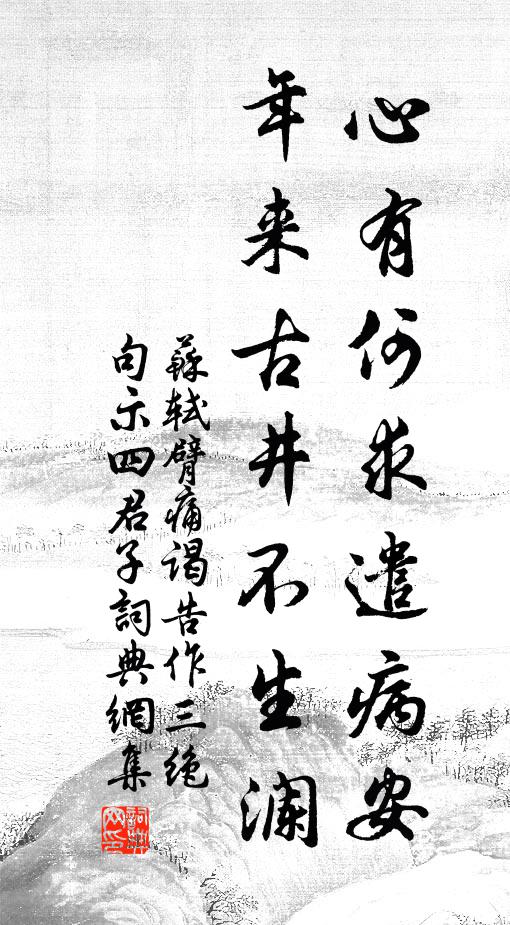 心有何求遣病安
年来古井不生澜
蘇軾臂痛谒告作三绝
句示四君子詞典網集